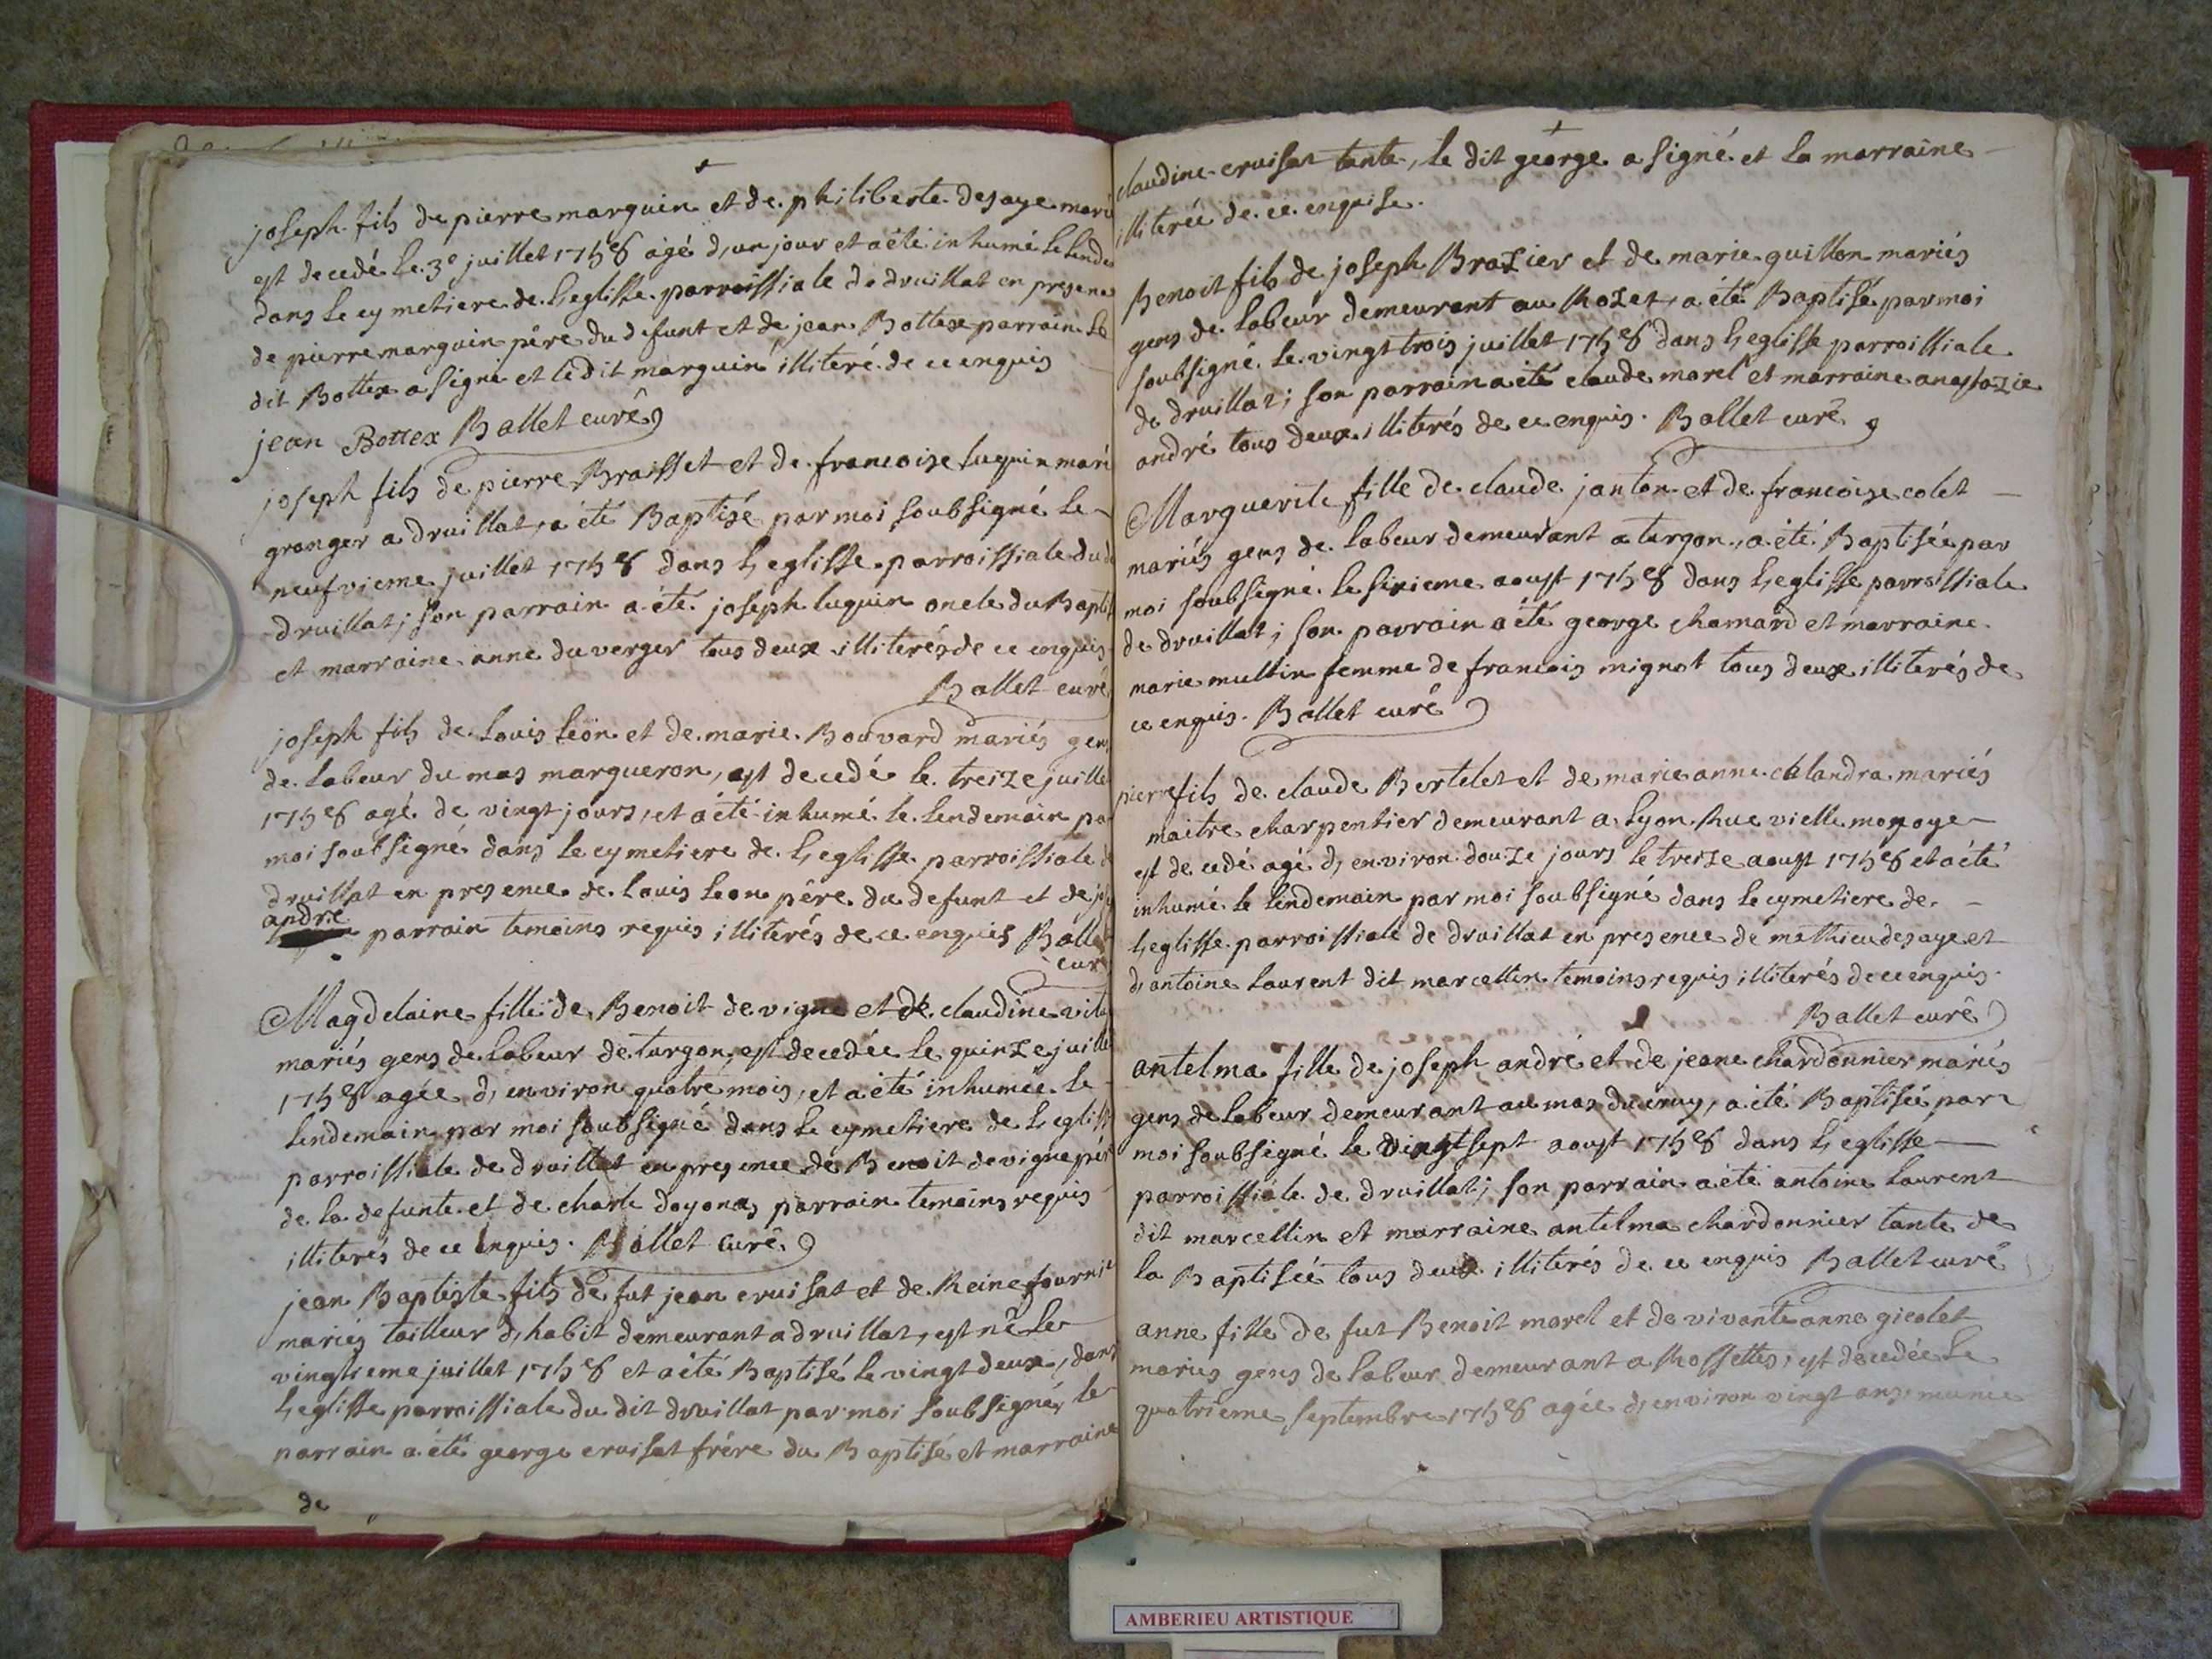 joseph fils de pierre marguin et de philiberte desaye mari
est decedé le 3e juillet 1758 agé d,un jour et a été inhumé le lende
dans le cymetiere de l,eglisse parroissiale de druillat en presence
de pierre marguin père du defunt et de jean Bottex parrain le
dit Bottex a signé et le dit marguin illiteré de ce enquis
jean Bottex Ballet curé
joseph fils de pierre Braisset et de francoise luquin mari
granger a druillat, a été Baptisé par moi soubsigné le
neufvieme juillet 1758 dans l,eglisse parroissiale du d
druillat; son parrain a été joseph luquin oncle du Bapti
et marraine anne duverger tous deux illiterés de ce enquis
Ballet curé
joseph fils de Louis leön et de marie Bouvard mariés gens
de labeur du mas margueron, est decedé le treize juille
1758 agé de vingt jours, et a été inhumé le lendemain pa
moi soubsigné dans le cymetiere de l,eglisse parroissiale d
druillat en presence de louis leon père du defunt et de
andré
parrain temoins requis illiterés de ce enquis Ballet
curé
Magdelaine fille de Benoit de vigne et de claudine
mariés gens de labeur de turgon, est decedée le quinze juille
1758 agée d,environ quatre mois, et a été inhumée le
lendemain par moi soubsigné dans le cymetiere de l,egliss
parroissiale de druillat en presence de Benoit devigne pér
de la defunte et de charle doyonas parrain temoins requis
illiterés de ce enquis. Ballet curé
jean Baptiste fils de fut jean cruisat et de Reine fournie
mariés tailleur d,habit demeurant a druillat, est né le
vingtieme juillet 1758 et a été Baptisé le vingt deux, dans
l,eglisse parroissiale du dit druillat par moi soubsigné, le
parrain a été george cruisat frére du Baptisé et marraine
de
claudine cruisat tante, le dit george a signé et la marraine
illiterée de ce enquise.
Benoit fils de joseph Brazier et de marie guillon mariés
gens de labeur demeurant au Rozet, a été Baptisé par moi
soubsigné le vingt trois juillet 1758 dans l,eglisse parroissiale
de druillat; son parrain a été claude morel et marraine anastazie
andré tous deux illiterés de ce enquis. Ballet curé
Marguerite fille de claude janton et de francoise colet
mariés gens de labeur demeurant a turgon, a été Baptisée par
moi soubsigné le sixieme aoust 1758 dans l,eglisse parroissiale
de druillat; son parrain a été george chamard et marraine
marie multin femme de francois mignot tous deux illiterés de
ce enquis. Ballet curé
pierre fils de claude Bertelet et de marie anne chalandra mariés
maitre charpentier demeurant a Lyon Rue vielle monoye
est decedé agé d,environ douze jours le treize aoust 1758 et a été
inhumé le lendemain par moi soubsigné dans le cymetiere de
l,eglisse parroissiale de druillat en presence de mathieu desaye et
d,antoine laurent dit marcellin temoins requis illiterés de ce enquis.
Ballet curé
antelma fille de joseph andré et de jeane chardonnier mariés
gens de labeur demeurant au mas du cruy, a été Baptisée par
moi soubsigné le vingt sept aoust 1758 dans l,eglisse
parroissiale de druillat; son parrain a été antoine laurent
dit marcellin et marraine antelma chardonnier tante de
la Baptisée tous deux illiterés de ce enquis Ballet curé
anne fille de fut Benoit morel et de vivante anne gicolet
mariés gens de labeur demeurant a Rossettes, est decedée le
quatrieme septembre 1758 agée d,environ vingt ans munie
AMBERIEU ARTISTIQUE